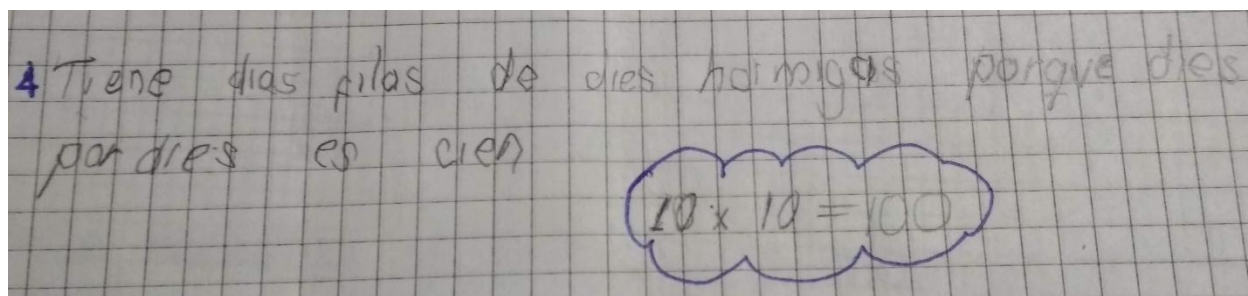 4 Tiene dias filas de dies hormigas porque dies
por dies es cien
10 x 10 = 100